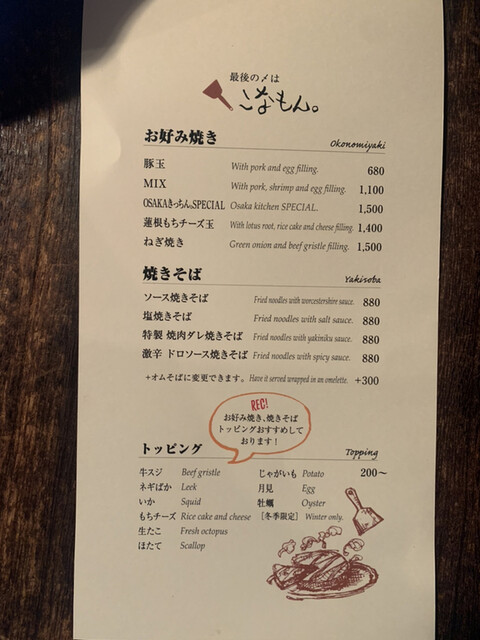 最後の〆は
こなもん。
お好み焼き Okonomiyaki
豚玉 With pork and egg filling. 680
MIX With pork, shrimp and egg filling. 1,100
OSAKAきっちん。SPECIAL Osaka kitchen SPECIAL. 1,500
蓮根もちチーズ玉 With lotus root, rice cake and cheese filling. 1,400
ねぎ焼き Green onion and beef gristle filling. 1,500
焼きそば Yakisoba
ソース焼きそば Fried noodles with worcestershire sauce. 880
塩焼きそば Fried noodles with salt sauce. 880
特製 焼肉ダレ焼きそば Fried noodles with yakiniku sauce. 880
激辛 ドロソース焼きそば Fried noodles with spicy sauce. 880
+オムそばに変更できます。 Have it served wrapped in an omelette. +300
REC!
お好み焼き、焼きそば
トッピングおすすめして
おります!
トッピング Topping
牛スジ Beef gristle じゃがいも Potato 200〜
ネギばか Leek 月見 Egg
いか Squid 牡蠣 Oyster
もちチーズ Rice cake and cheese [冬季限定] Winter only.
生たこ Fresh octopus
ほたて Scallop